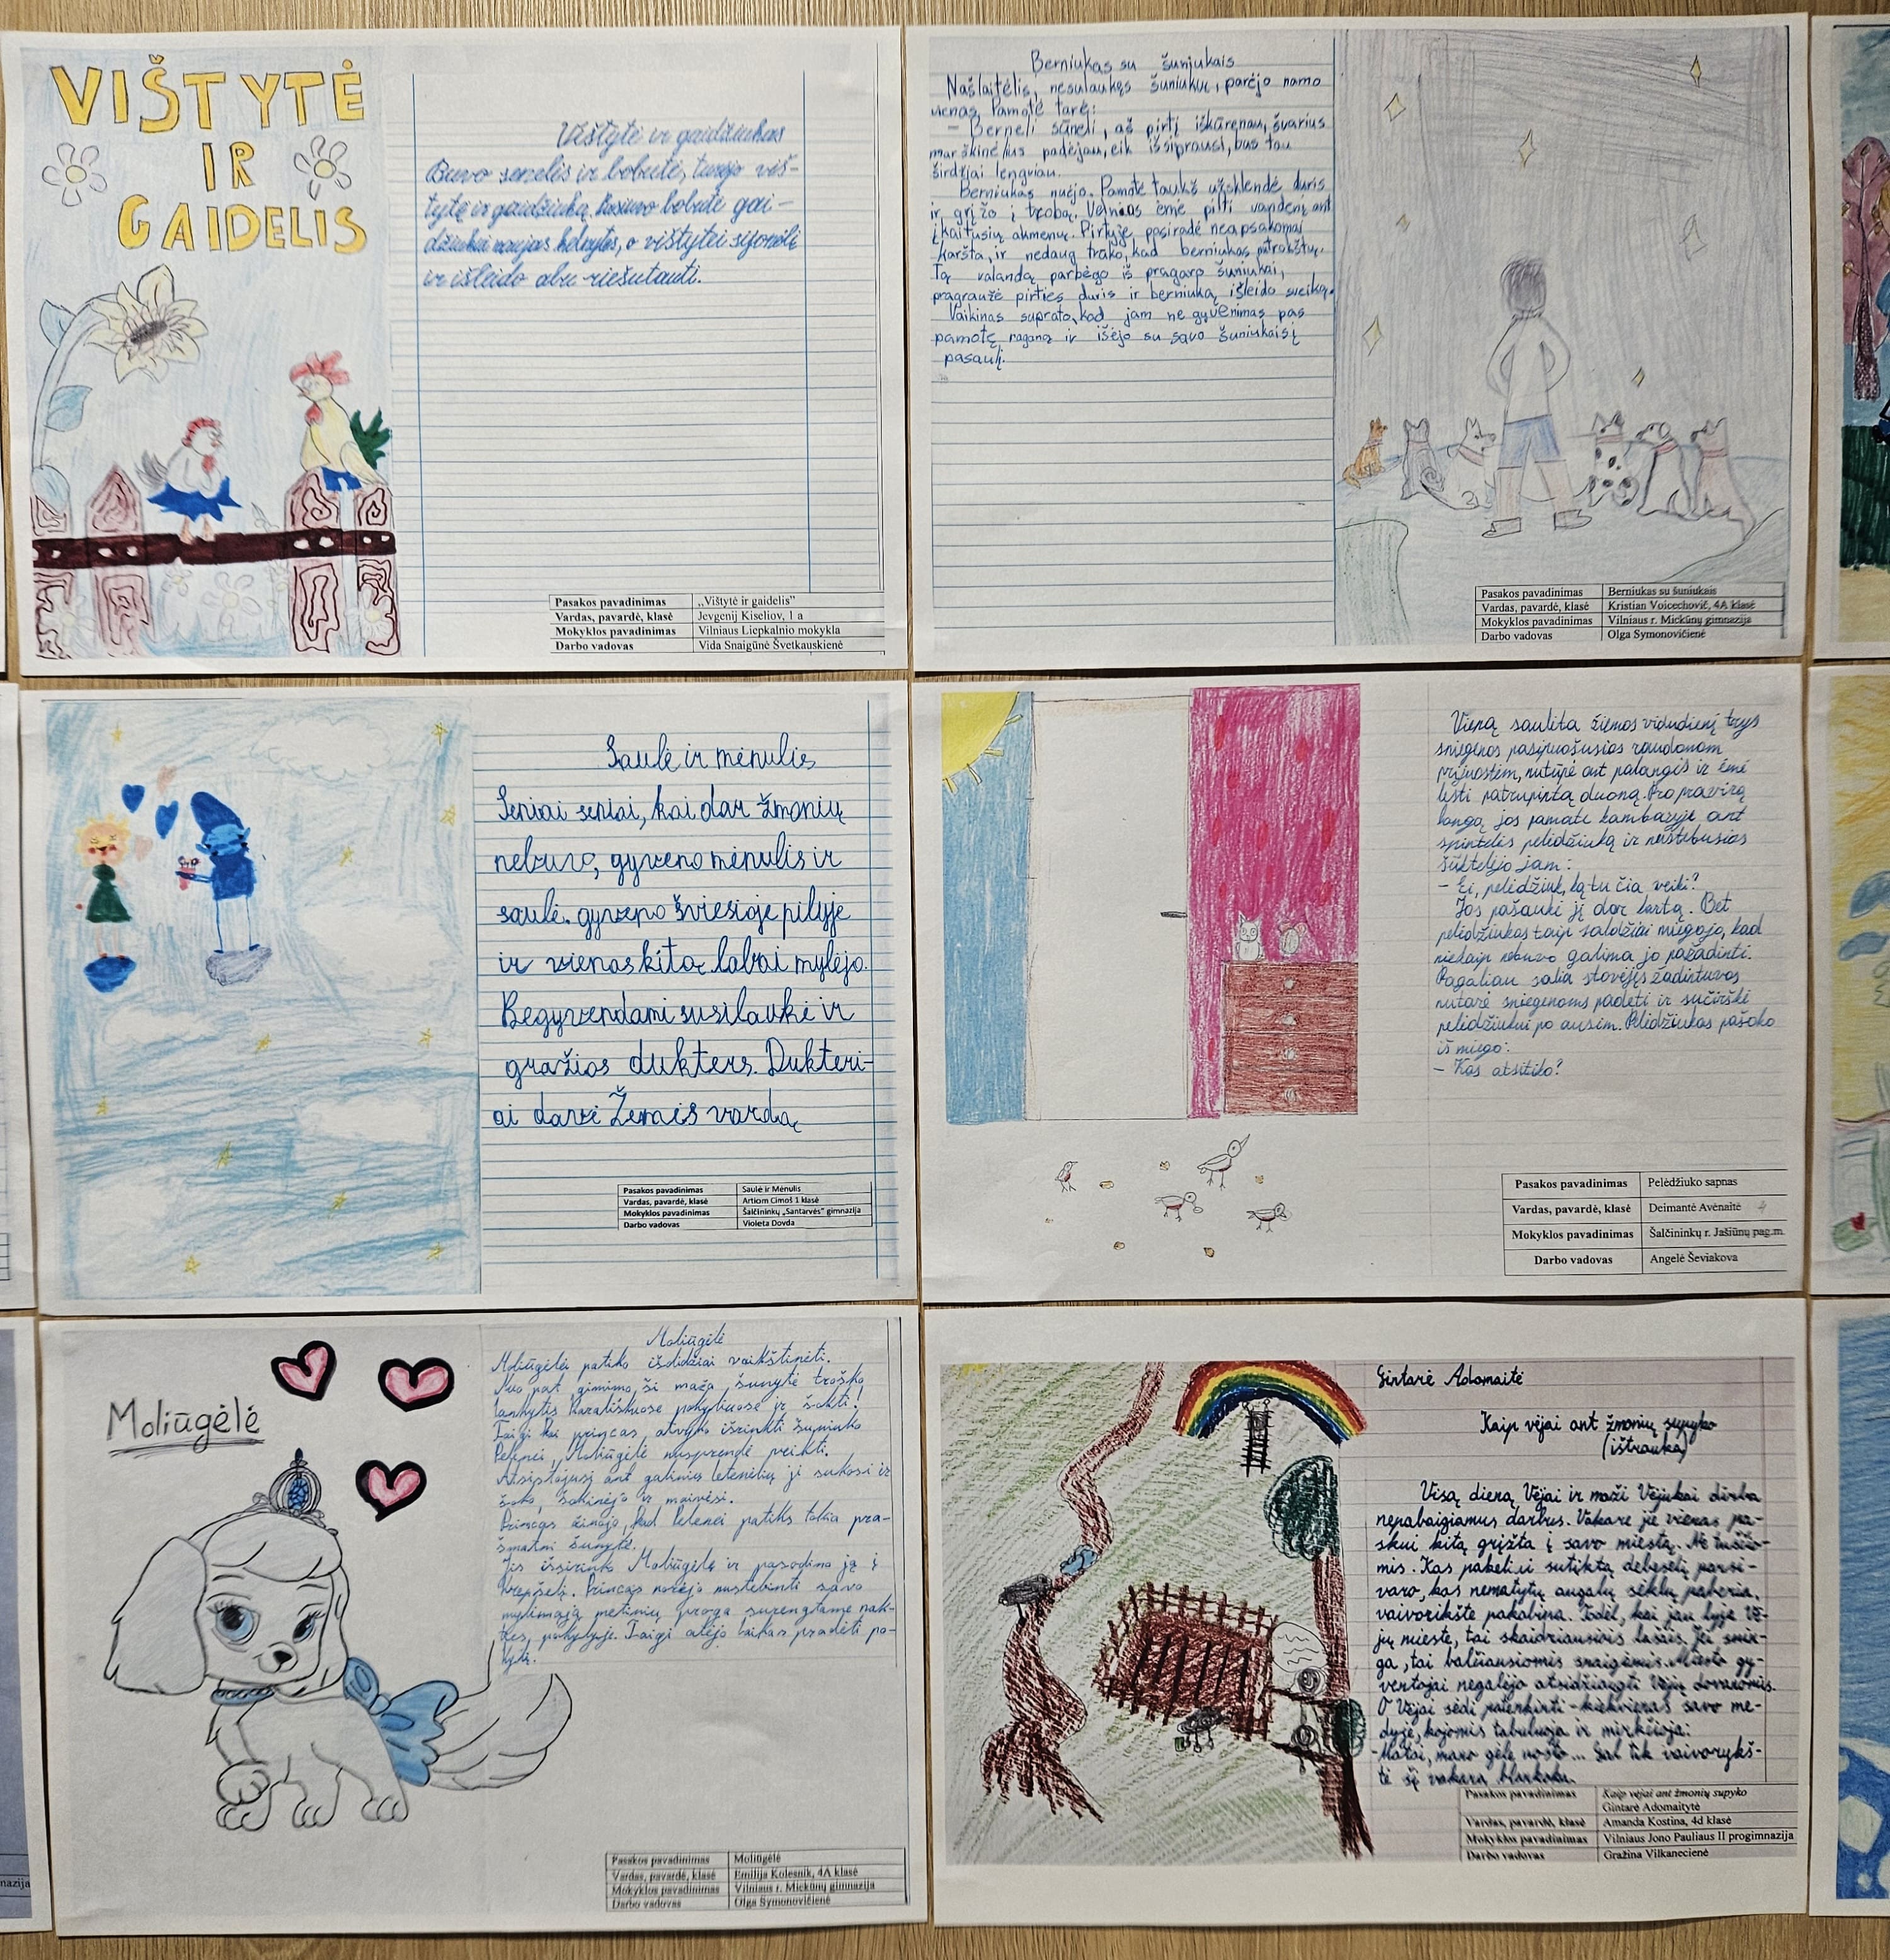 VIŠTYTĖ
IR
GAIDELIS
Vištytė ir gaidžiukas
Buvo senelis ir bobutė, turėjo viš-
tytę ir gaidžiuką. bobutė gai-
džiukui naujas kelnytes, o vištytei sijonėlį
ir išleido abu riešutauti.
Pasakos pavadinimas „Vištytė ir gaidelis"
Vardas, pavardė, klasė Jevgenij Kiseliov, 1 a
Mokyklos pavadinimas Vilniaus Liepkalnio mokykla
Darbo vadovas Vida Snaigūnė Švetkauskienė
Berniukas su šunjukais
Našlaitėlis, nesulaukęs šuniukų, parėjo namo
vienas. Pamotė tarė:
- Berneli sūneli, aš pirtį iškūrenau, švarius
marškinėlius padėjau, eik išsiprausi, bus tau
širdžiai lengviau.
Berniukas nuėjo. Pamotė taukš užsklendė duris
ir grįžo į trobą. Velnias ėmė pilti vandenį ant
įkaitusių akmenų. Pirtyje pasiradė neapsakomai
karšta, ir nedaug trūko, kad berniukas
Tą valandą parbėgo iš pragaro šuniukai,
pragraužė pirties duris ir berniuką išleido sveiką.
Vaikinas suprato, kad jam ne gyvenimas pas
pamotę raganą ir išėjo su savo šuniukais į
pasaulį.
Pasakos pavadinimas Berniukas su šuniukais
Vardas, pavardė, klasė Kristian Voicechovič, 4A klasė
Mokyklos pavadinimas Vilniaus r. Mickūnų gimnazija
Darbo vadovas Olga Symonovičienė
Saulė ir mėnulis
Seniai seniai, kai dar žmonių
nebuvo, gyveno mėnulis ir
saulė. gyveno šviesioje pilyje
ir vienas kitą labai mylėjo.
Begyvendami susilaukė ir
gražios dukters. Dukteri-
ai davė Žemės vardą
Pasakos pavadinimas Saulė ir Mėnulis
Vardas, pavardė, klasė Artiom Cimoš 1 klasė
Mokyklos pavadinimas Šalčininkų „Santarvės" gimnazija
Darbo vadovas Violeta Dovda
Vieną saulėtą žiemos vidudienį trys
sniegenos pasipuošusios raudonom
prijuostėm, nutūpė ant palangės ir ėmė
lesti patrupintą duoną. Pro pravirą
langą jos pamatė kambaryje ant
spintelės pelėdžiuką ir nustebusios
šūktelėjo jam:
- Ei, pelėdžiuk, ką tu čia veiki?
Jos pašaukė jį dar kartą. Bet
pelėdžiukas taip saldžiai miegojo, kad
niekaip nebuvo galima jo pažadinti.
Pagaliau šalia stovėjęs žadintuvas
nutarė sniegenoms padėti ir sučirškė
pelėdžiukui po ausim. Pelėdžiukas pašoko
iš miego:
- Kas atsitiko?
Pasakos pavadinimas Pelėdžiuko sapnas
Vardas, pavardė, klasė Deimantė Avėnaitė 4
Mokyklos pavadinimas Šalčininkų r. Jašiūnų pag.m.
Darbo vadovas Angelė Ševiakova
Moliūgėlė
Moliūgėlė
Moliūgėlei patiko išdidžiai vaikštinėti.
Nuo pat gimimo ši maža šunytė troško
lankytis karališkuose pokyliuose ir šokti!
Taigi kai princas atvyko išrinkti šuniuko
Pelenei, Moliūgėlė nusprendė veikti.
Atsistojusi ant galinių letenėlių ji sukosi ir
šoko, šokinėjo ir maivėsi.
Princas žinojo, kad Pelenei patiks tokia pra-
šmatni šunytė.
Jis išsirinko Moliūgėlę ir pasodino ją į
krepšelį. Princas norėjo nustebinti savo
mylimąją metinių proga surengtame nak-
ties pokylyje. Taigi atėjo laikas pradėti po-
kylį.
Pasakos pavadinimas Moliūgėlė
Vardas, pavardė, klasė Emilija Kolesnik, 4A klasė
Mokyklos pavadinimas Vilniaus r. Mickūnų gimnazija
Darbo vadovas Olga Symonovičienė
Gintarė Adomaitė
Kaip vėjai ant žmonių supyko
(ištrauka)
Visą dieną Vėjai ir maži Vėjukai dirba
nepabaigiamus darbus. Vakare jie vienas pa-
skui kitą grįžta į savo miestą. Ne tuščio-
mis. Kas pakeliui sutiktą debesėlį parsi-
varo, kas nematytų augalų sėklų paberia,
vaivorykštę pakabina. Todėl, kai jau lyja Vė-
jų mieste, tai skaidriausiais lašais. Jei snin-
ga, tai balčiausiomis snaigėmis. Miesto gy-
ventojai negalėjo atsidžiaugti Vėjų dovanomis.
O Vėjai sėdi patenkinti - kiekvienas savo me-
dyje, kojomis tabaluoja ir mirkčioja:
- Matai, mano gėlė ... Gal tik vaivorykš-
tė šį vakarą
Pasakos pavadinimas Kaip vėjai ant žmonių supyko
Gintarė Adomaitytė
Vardas, pavardė, klasė Amanda Kostina, 4d klasė
Mokyklos pavadinimas Vilniaus Jono Pauliaus II progimnazija
Darbo vadovas Gražina Vilkanecienė
nazija